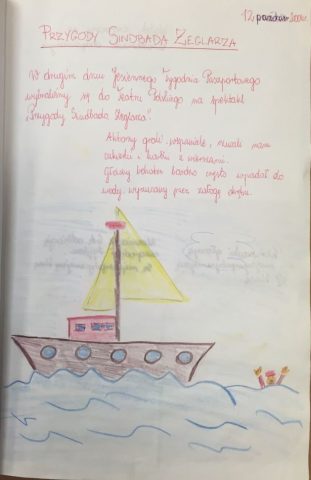 12 październ 2000r.
PRZYGODY SINDBADA ŻEGLARZA
W drugim dniu "Jesiennego Tygodnia Paszportowego
wybraliśmy się do Teatru Polskiego na spektakl
"Przygody Sindbada Żeglarza".
Aktorzy grali wspaniale, rzucali nam
cukierki i kartki z wierszami.
Główny bohater bardzo często wpadał do
wody, wyrzucany przez załogę okrętu.